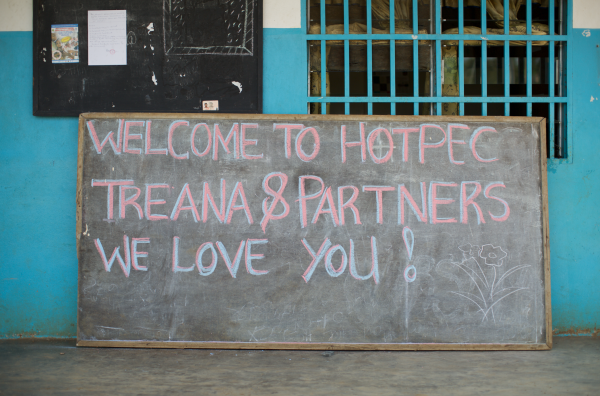 WELCOME TO HOTPEC
TREANA & PARTNERS
WE LOVE YOU!